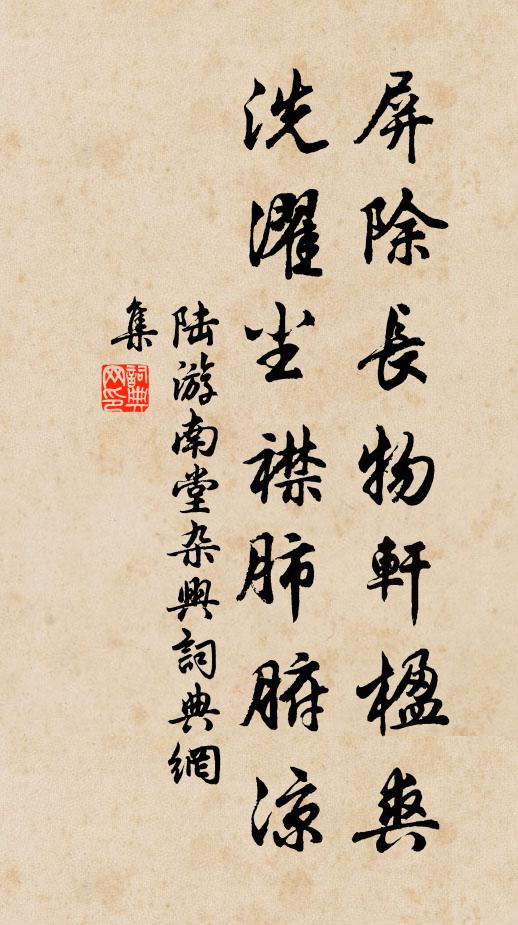 屏除長物軒楹爽
洗濯尘襟肺腑凉
陆游南堂杂興詞典網
集
詞典
网印